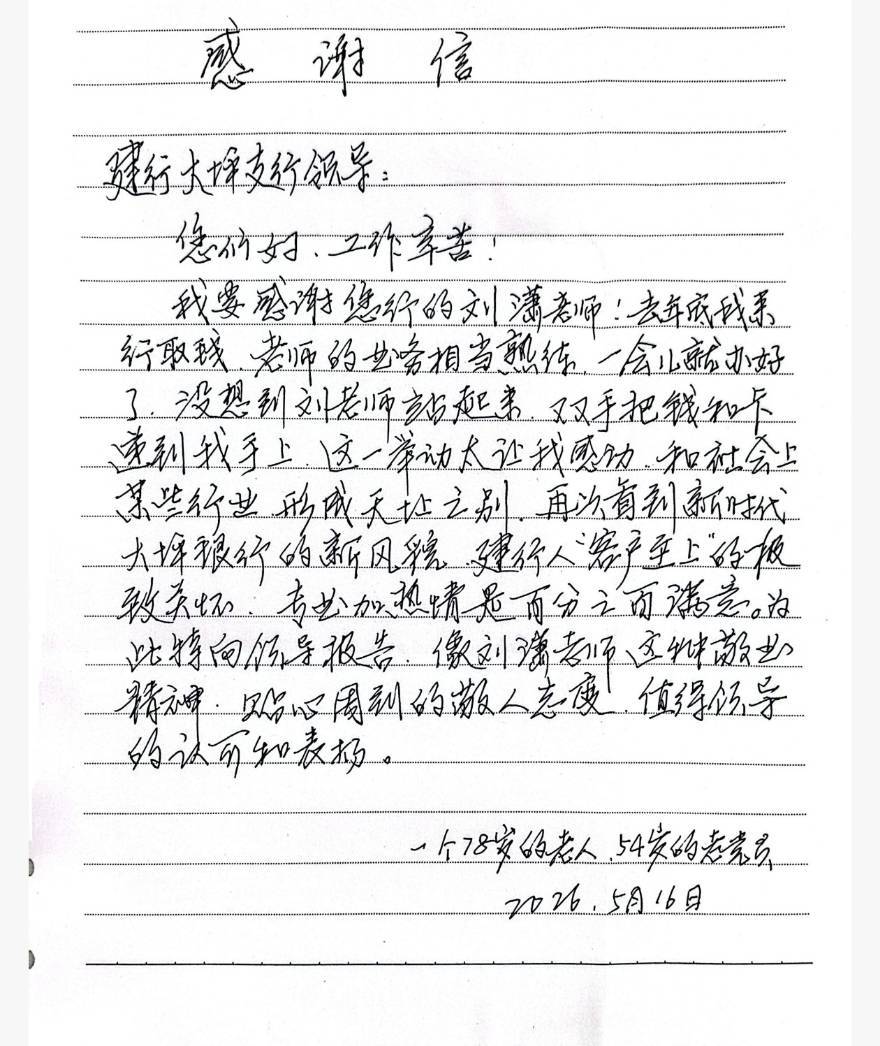 感谢信
建行大坪支行领导：
您们好、工作辛苦！
我要感谢您行的刘潇老师！去年底我来
行取钱、老师的业务相当熟练、一会儿就办好
了、没想到刘老师站起来、双手把钱和卡
递到我手上、这一举动太让我感动、和社会上
某些行业、形成天地之别、再次看到新时代
大坪银行的新风貌、建行人“客户至上”的极
致关怀、专业加热情是百分之百满意。为
此特向领导报告、像刘潇老师这种敬业
精神、贴心周到的敬人态度、值得领导
的认可和表扬。
一个78岁的老人、54岁的老党员
2026.5月16日